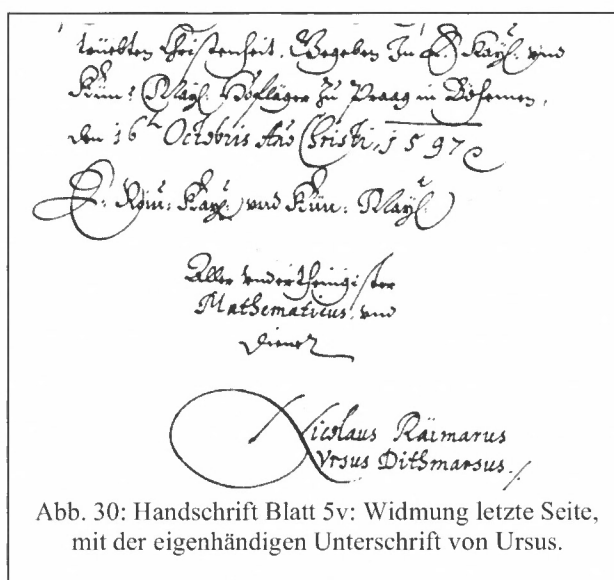 trüebten Christenheit. Gegeben In E. Kayl: vnd
Kün: Mayl: Hofläger zu Praag in Böhemen,
den 16 Octobris Año Christi, 1597
E: Röm: Kayl: vnd Kün: Mayl:
Aller vndertheinigister
Mathematicus vnd
Diener
Nicolaus Räimarus
Vrsus Dithmarsus.
Abb. 30: Handschrift Blatt 5v: Widmung letzte Seite,
mit der eigenhändigen Unterschrift von Ursus.